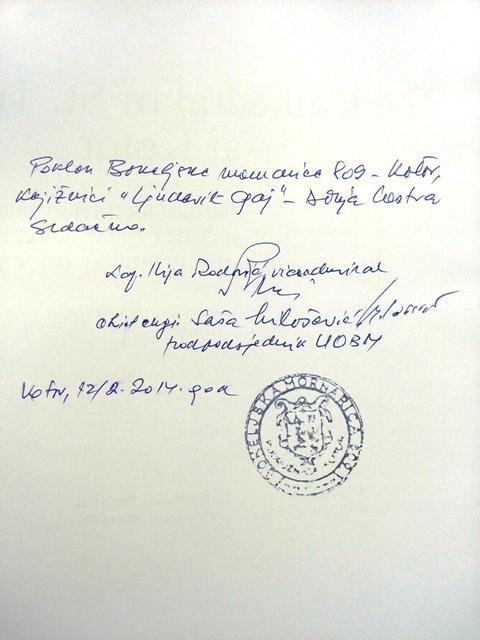 Poklon Bokeljske mornarice 809 - Kotor,
Knjižnici "Ljudevit Gaj" - Donja Dubrava
Srdačno.
Ilija Radović, viceadmiral
Saša Milošević
podpredsjednik UOBM
Kotor, 12/2. 2014. god
BOKELJSKA MORNARICA 809
KOTOR